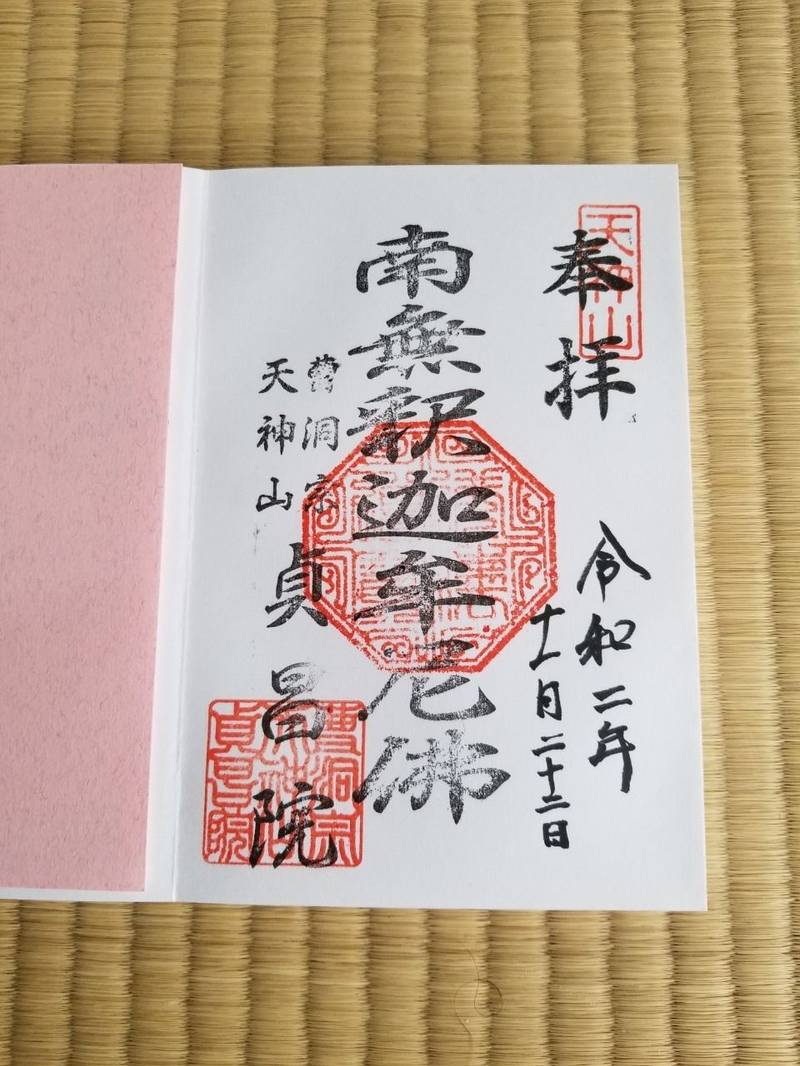 天神山
奉拝
令和二年
十一月二十三日
南無釈迦牟尼佛
曹洞宗
天神山
貞昌院
曹洞宗
天神山
貞昌院